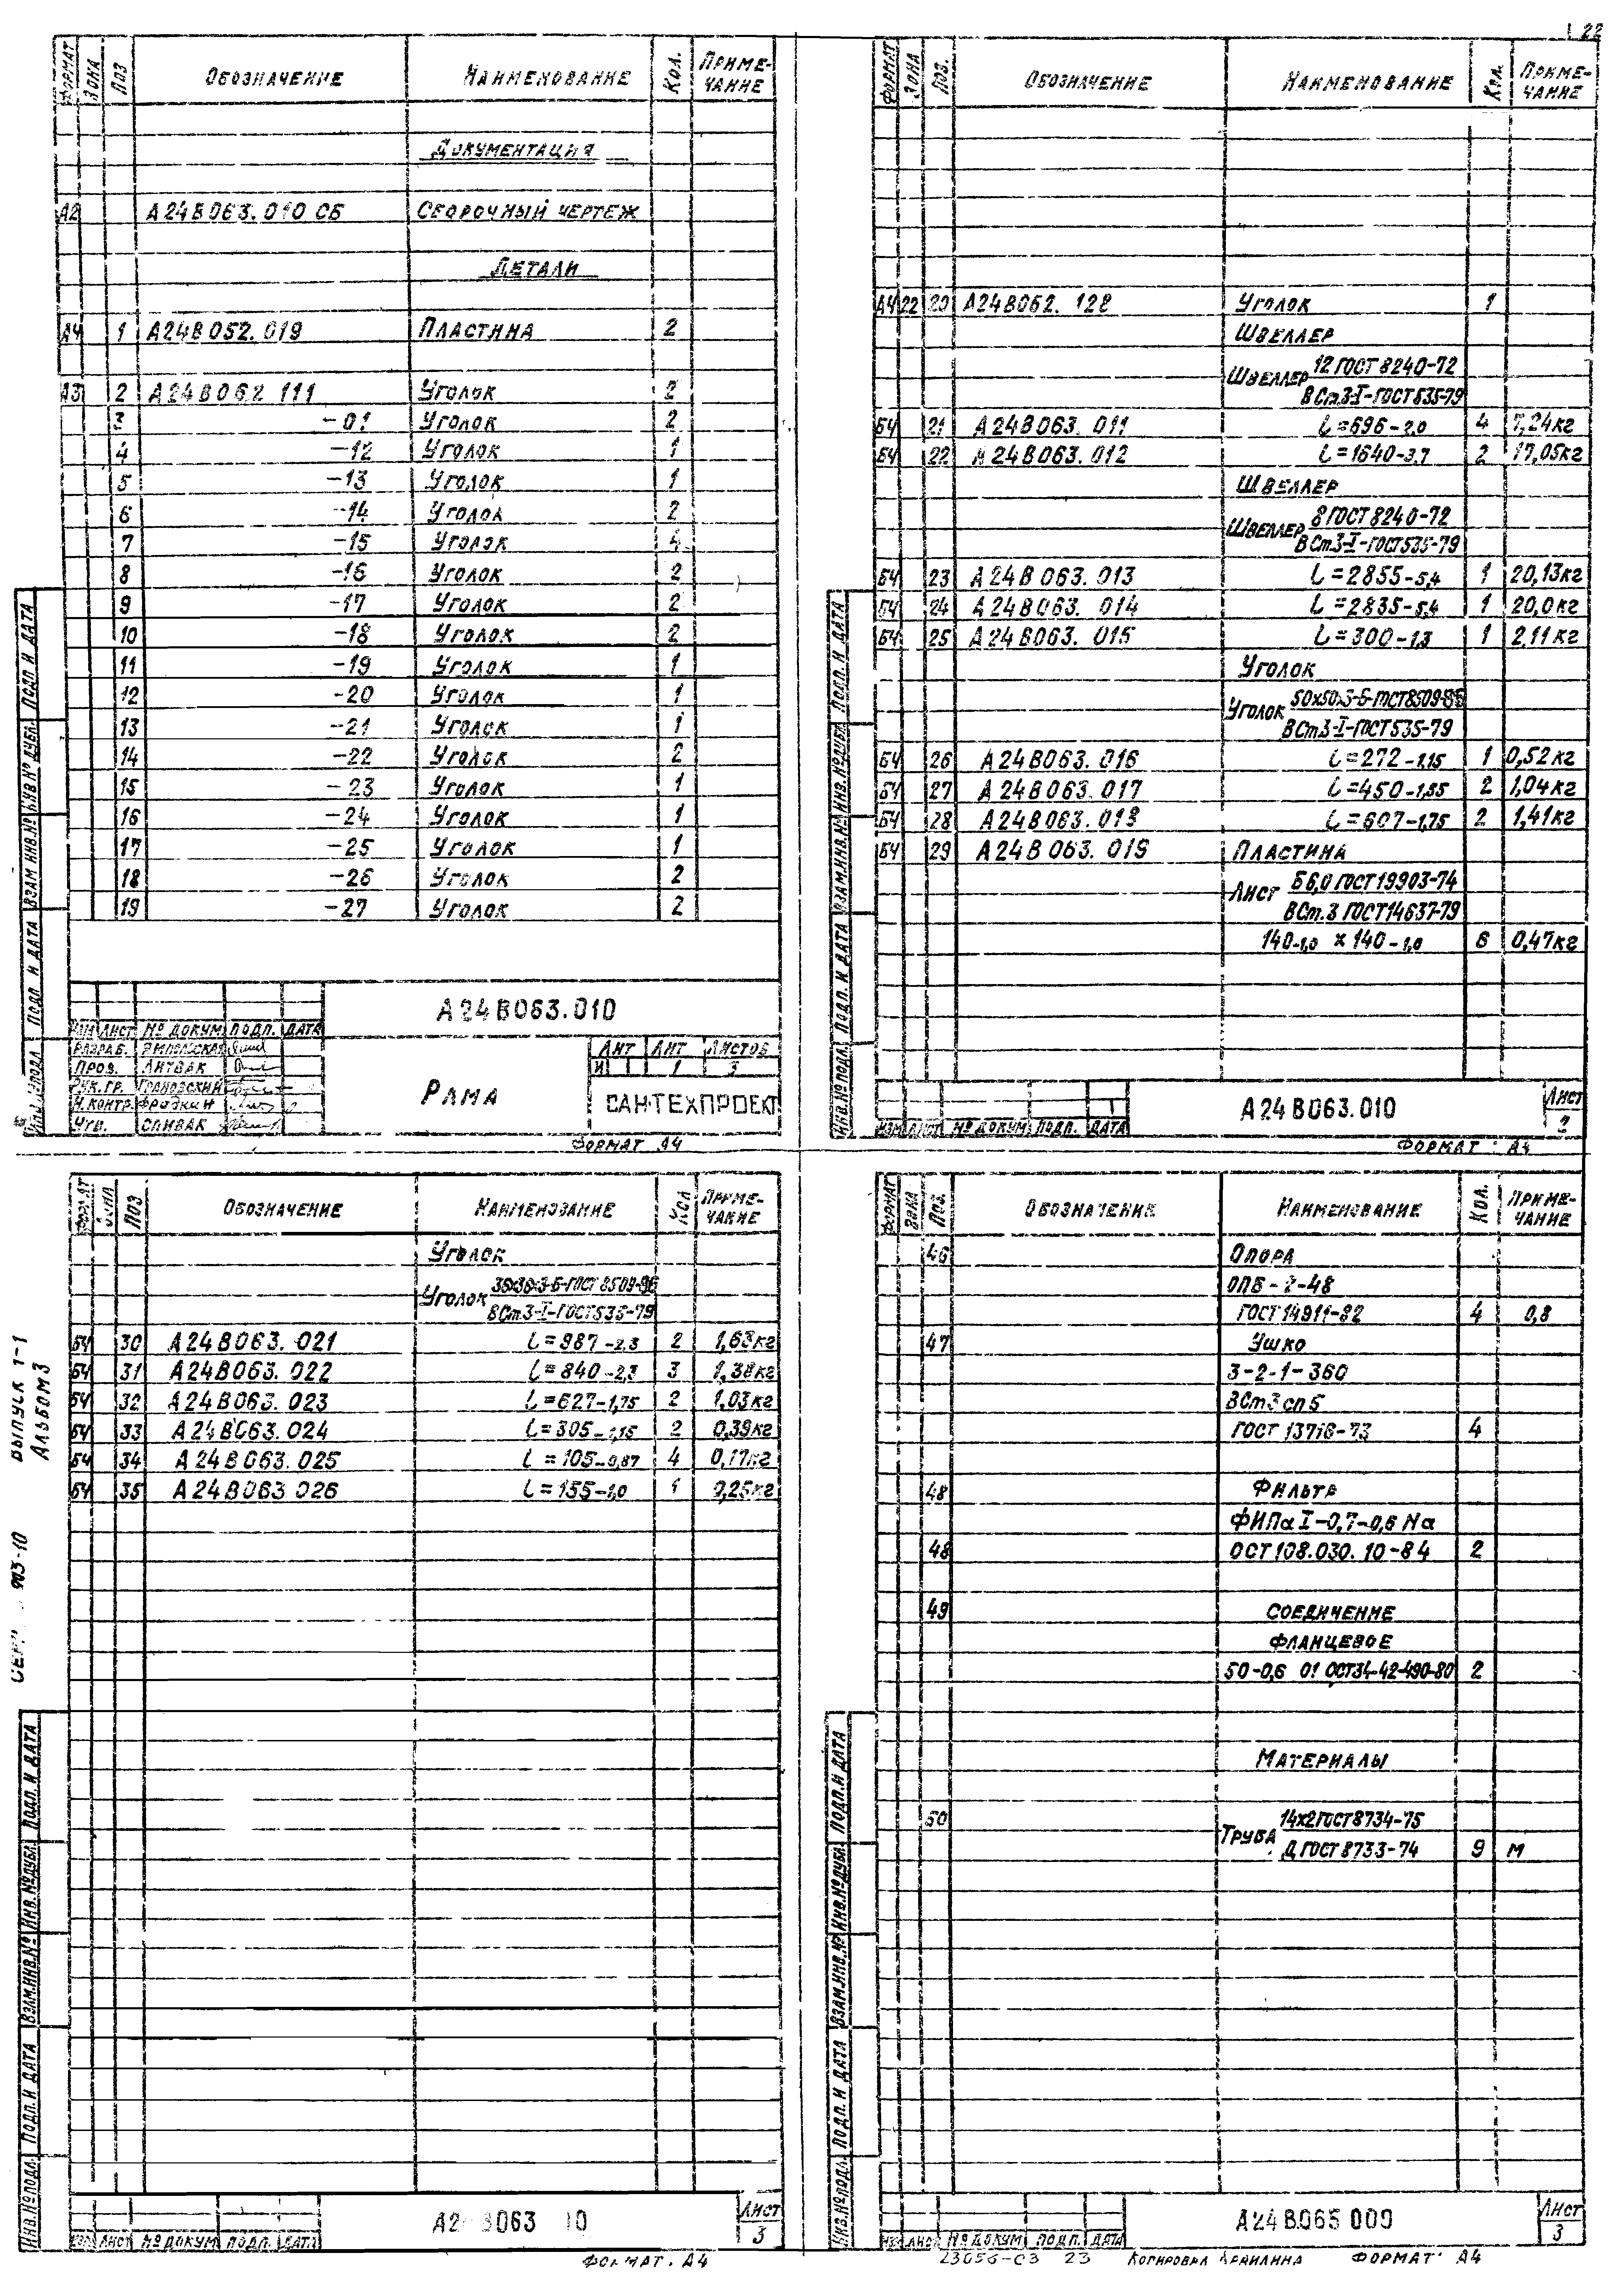 22
ФОРМАТ ЗОНА ПОЗ ОБОЗНАЧЕНИЕ НАИМЕНОВАНИЕ КОЛ. ПРИМЕ-ЧАНИЕ
ДОКУМЕНТАЦИЯ
А2 А24В063.010 СБ СБОРОЧНЫЙ ЧЕРТЕЖ
ДЕТАЛИ
А4 1 А24В052.019 ПЛАСТИНА 2
А3 2 А24В062 111 УГОЛОК 2
3 -01 УГОЛОК 2
4 -12 УГОЛОК 1
5 -13 УГОЛОК 1
6 -14 УГОЛОК 2
7 -15 УГОЛОК 4
8 -16 УГОЛОК 2
9 -17 УГОЛОК 2
10 -18 УГОЛОК 2
11 -19 УГОЛОК 1
12 -20 УГОЛОК 1
13 -21 УГОЛОК 1
14 -22 УГОЛОК 2
15 -23 УГОЛОК 1
16 -24 УГОЛОК 1
17 -25 УГОЛОК 1
18 -26 УГОЛОК 2
19 -27 УГОЛОК 2
А24В063.010
ИЗМ ЛИСТ № ДОКУМ ПОДП. ДАТА
РАЗРАБ.
ПРОВ. ЛИТВАК
РУК. ГР. ГРАНОВСКИЙ
Н.КОНТР. ФРАДКИН
УТВ. СПИВАК
РАМА
ЛИТ ЛИТ ЛИСТОВ
И 1 3
САНТЕХПРОЕКТ
ФОРМАТ А4
ИНВ.№ПОДЛ ПОДП И ДАТА ВЗАМ ИНВ.№ ИНВ № ДУБЛ. ПОДП И ДАТА
ФОРМАТ ЗОНА ПОЗ. ОБОЗНАЧЕНИЕ НАИМЕНОВАНИЕ КОЛ. ПРИМЕ-ЧАНИЕ
А4 22 20 А24В062. 128 УГОЛОК 1
ШВЕЛЛЕР
ШВЕЛЛЕР 12 ГОСТ 8240-72
ВСт.3-I-ГОСТ535-79
БЧ 21 А24В063. 011 L=696-2,0 4 7,24кг
БЧ 22 А24В063. 012 L=1640-3,7 2 17,05кг
ШВЕЛЛЕР
ШВЕЛЛЕР 8 ГОСТ 8240-72
ВСт.3-I-ГОСТ535-79
БЧ 23 А24В063. 013 L=2855-5,4 1 20,13кг
БЧ 24 А24В063. 014 L=2835-5,4 1 20,0кг
БЧ 25 А24В063. 015 L=300-1,3 1 2,11кг
УГОЛОК
УГОЛОК 50х50х3-Б-ГОСТ8509-86
ВСт.3-I-ГОСТ535-79
БЧ 26 А24В063. 016 L=272-1,15 1 0,52кг
БЧ 27 А24В063. 017 L=450-1,55 2 1,04кг
БЧ 28 А24В063. 018 L=607-1,75 2 1,41кг
БЧ 29 А24В063. 019 ПЛАСТИНА
ЛИСТ Б6,0 ГОСТ19903-74
ВСт.3 ГОСТ14637-79
140-1,0 х 140-1,0 6 0,47кг
ИЗМ ЛИСТ № ДОКУМ ПОДП. ДАТА
А24В063.010
ЛИСТ
2
ФОРМАТ А4
ИНВ.№ПОДЛ. ПОДП. И ДАТА ВЗАМ.ИНВ.№ ИНВ.№ДУБЛ ПОДП. И ДАТА
ВЫПУСК 1-1
АЛЬБОМ 3
903-10
ФОРМАТ ПОЗ ОБОЗНАЧЕНИЕ НАИМЕНОВАНИЕ КОЛ ПРИМЕ-ЧАНИЕ
УГОЛОК
УГОЛОК 36х36х3-Б-ГОСТ8509-86
ВСт.3-I-ГОСТ535-79
БЧ 30 А24В063. 021 L=987-2,3 2 1,63кг
БЧ 31 А24В063. 022 L=840-2,3 3 1,38кг
БЧ 32 А24В063. 023 L=627-1,75 2 1,03кг
БЧ 33 А24В063. 024 L=305-1,15 2 0,39кг
БЧ 34 А24В063. 025 L=105-0,87 4 0,17кг
БЧ 35 А24В063 026 L=155-1,0 1 0,25кг
ИЗМ ЛИСТ № ДОКУМ ПОДП. ДАТА
А24В063 10
ЛИСТ
3
ФОРМАТ. А4
ИНВ.№ПОДЛ. ПОДП. И ДАТА ВЗАМ.ИНВ.№ ИНВ.№ДУБЛ. ПОДП. И ДАТА
ФОРМАТ ЗОНА ПОЗ. ОБОЗНАЧЕНИЕ НАИМЕНОВАНИЕ КОЛ. ПРИМЕ-ЧАНИЕ
46 ОПОРА
ОПБ-2-48
ГОСТ 14911-82 4 0,8
47 УШКО
3-2-1-360
ВСт3сп5
ГОСТ 13716-73 4
48 ФИЛЬТР
ФИПаI-0,7-0,6 Na
48 ОСТ108.030. 10-84 2
49 СОЕДИНЕНИЕ
ФЛАНЦЕВОЕ
50-0,6 01 ОСТ34-42-490-80 2
МАТЕРИАЛЫ
50 ТРУБА 14х2ГОСТ8734-75
Д ГОСТ 8733-74 9 М
ИЗМ ЛИСТ № ДОКУМ ПОДП. ДАТА
А24В065 000
ЛИСТ
3
23056-03 23 КОПИРОВАЛ ФОРМАТ А4
ИНВ.№ПОДЛ. ПОДП. И ДАТА ВЗАМ.ИНВ.№ ИНВ.№ДУБЛ. ПОДП. И ДАТА